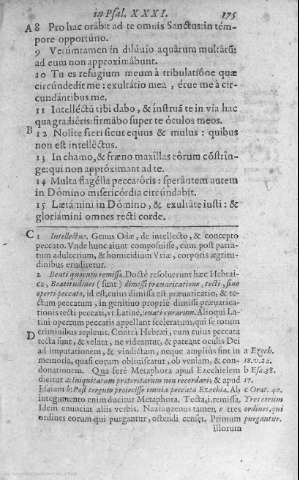 in Psal. XXXI. 175
A 8 Pro hac orabit ad te omnis Sanctus: in tém-
pore opportuno.
9 Verumtamen in dilúvio aquârum multârũ
ad eum non approximábunt.
10 Tu es refugium meum à tribulatiône quæ
circúndedit me: exultátio mea, érue me à cir-
cundántibus me.
11 Intelléctũ tibi dabo, & instruã te in via hac
qua gradiêris: firmâbo super te óculos meos.
B 12 Nolíte fíeri sicut equus & mulus: quibus
non est intelléctus.
13 In chamo, & fræno maxíllas eôrum cõstrin-
ge: qui non appróximant ad te.
14 Multa flagélla peccatôris: sperántem autem
in Dómino misericórdia circúndabit.
15 Lætámini in Dómino, & exultáte iusti: &
gloriámini omnes recti corde.
C 1 Intellectus. Genus Odæ, de intellecto, & concepto
peccato. Vnde hunc aiunt composuisse, cum post patra-
tum adulterium, & homicidium Vriæ, corporis ægritu-
dinibus erudiretur.
2 Beati quorum remissa. Doctè resoluerunt hæc Hebrai-
ce, Beatitudines (sunt) dimissi præuaricatione, tecti, siue
operti peccato, id est, cuius dimissa est præuaricatio, & te-
ctum peccatum, in genitiuo proprio dimissi præuaricati-
ti peccati, vt recte Latinè,
Latini opertum peccatis appellant sceleratum, qui se totum
criminibus repleuit. Contrà Hebræi, cum cuius peccata
D tecta sunt, & velata, ne videantur, & pateant oculis Dei
ad imputationem, & vindictam, neque ampliùs sint in a Ezech.
memoria, quasi eorum obliuiscatur, ob veniam, & con- 18. v. 22.
donationem. Qua ferè Metaphora apud Ezechielem b Esa. 38.
dicitur a iniquitatum præteritarum non recordaris; & apud 17.
Esaiam b Post tergum proiecisse omnia peccata Ezechiæ. Ab c Orat. 40.
integumento enim ducitur Metaphora. Tecta, i. remissa, Tres eorum
Idem enuntiat aliis verbis. Nazianzenus tamen, c tres ordines, qui
ordines eorum qui purgantur, ostendi censet. Primum purgantur.
illorum